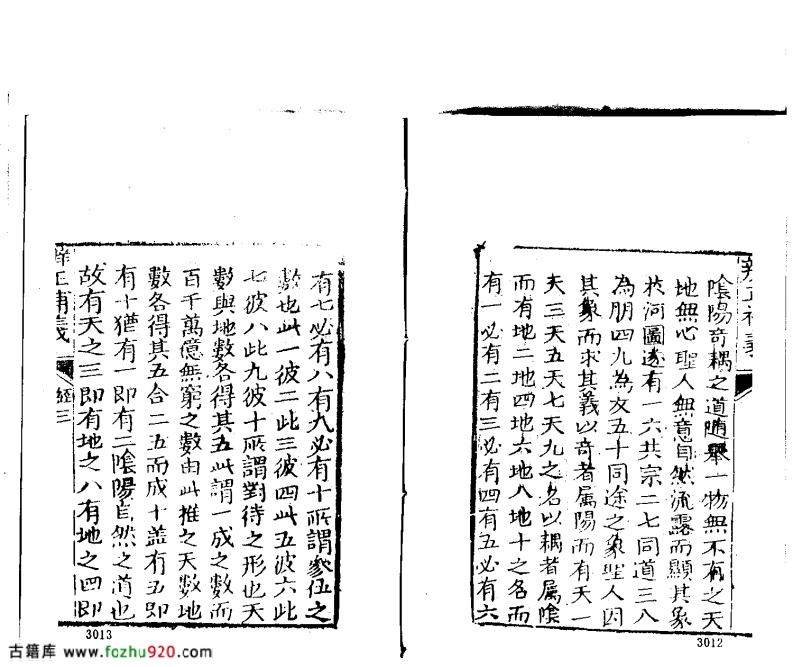 陰陽奇耦之道随舉一物無不有之天
地無心聖人無意自然流露而顯其象
於河圖遂有一六共宗二七同道三八
為朋四九為友五十同途之象聖人因
其象而求其義以奇者属陽而有天一
天三天五天七天九之名以耦者属陰
而有地二地四地六地八地十之名而
有一必有二有三必有四有五必有六
3012
有七必有八有九必有十所謂參伍之
數也此一彼二此三彼四此五彼六此
七彼八此九彼十所謂對待之形也天
數與地數各得其五此謂一成之數而
百千萬億無窮之數由此推之天數地
數各得其五合二五而成十盖有五即
有十猶有一即有二陰陽自然之道也
故有天之三即有地之八有地之四即
經三
3013
古籍库 www.fozhu920.com